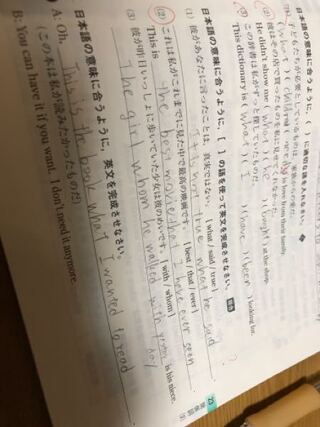 日本語の意味に合うように、( )に適切な語を入れなさい。
(1) 子どもたちが必要としているものは、家族の愛だ。
( What ) ( children ) ( need ) is love from their family.
(2) 彼はその店で買ったものを私に見せてくれなかった。
He didn't show me ( what ) ( he ) ( bought ) at the shop.
(3) この辞書は私がずっと探していたものだ。
This dictionary is ( what ) ( I ) ( have ) ( been ) looking for.
日本語の意味に合うように、[ ]の語を使って英文を完成させなさい。
(1) 彼があなたに言ったことは、真実ではない。 [ what / said / true ]
true what he said
(2) これは私がこれまでに見た中で最高の映画です。 [ best / that / ever ]
This is the best movie that I have ever seen
(3) 彼が昨日いっしょに歩いていた少女は彼のめいです。 [ with / whom ]
The girl whom he walked with is his niece.
日本語の意味に合うように、英文を完成させなさい。
A: Oh, this is the book what I wanted to read
(この本は私が読みたかったものだ)
B: You can have it if you want. I don't need it anymore.
23
関係詞